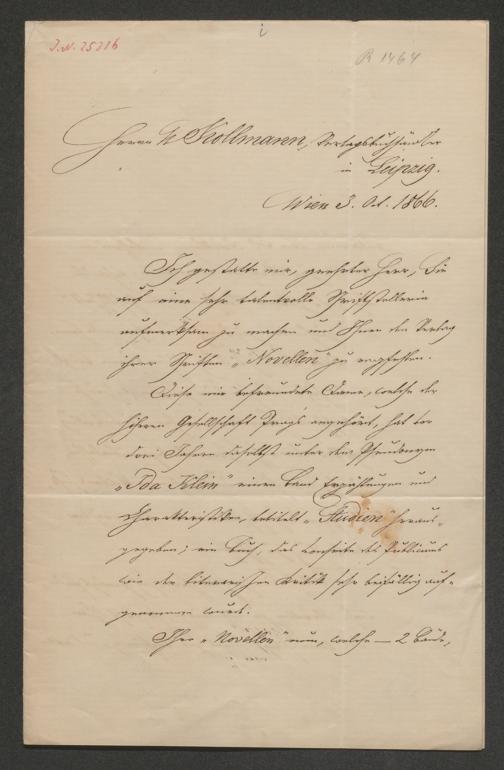 J.N. 25216
R 1464
Herrn Kollmann, Verlagsbuchhändler
in Leipzig.
Wien 3. Oct. 1866.
Ich gestatte mir, geehrter Herr, Sie
auf eine sehr talentvolle Schriftstellerin
aufmerksam zu machen und Ihnen den Verlag
ihrer Schriften „Novellen" zu empfehlen.
Diese mir befreundete Dame, welche der
höheren Gesellschaft Prags angehört, hat vor
drei Jahren daselbst unter dem Pseudonym
„Ida Klein" einen Band Erzählungen und
Charakteristiken, betitelt „Studien" heraus-
gegeben; ein Buch, das von Seite des Publicums
wie der literarischen Kritik sehr beifällig auf-
genommen ward.
Ihre „Novellen" nun, welche — 2 Bände,